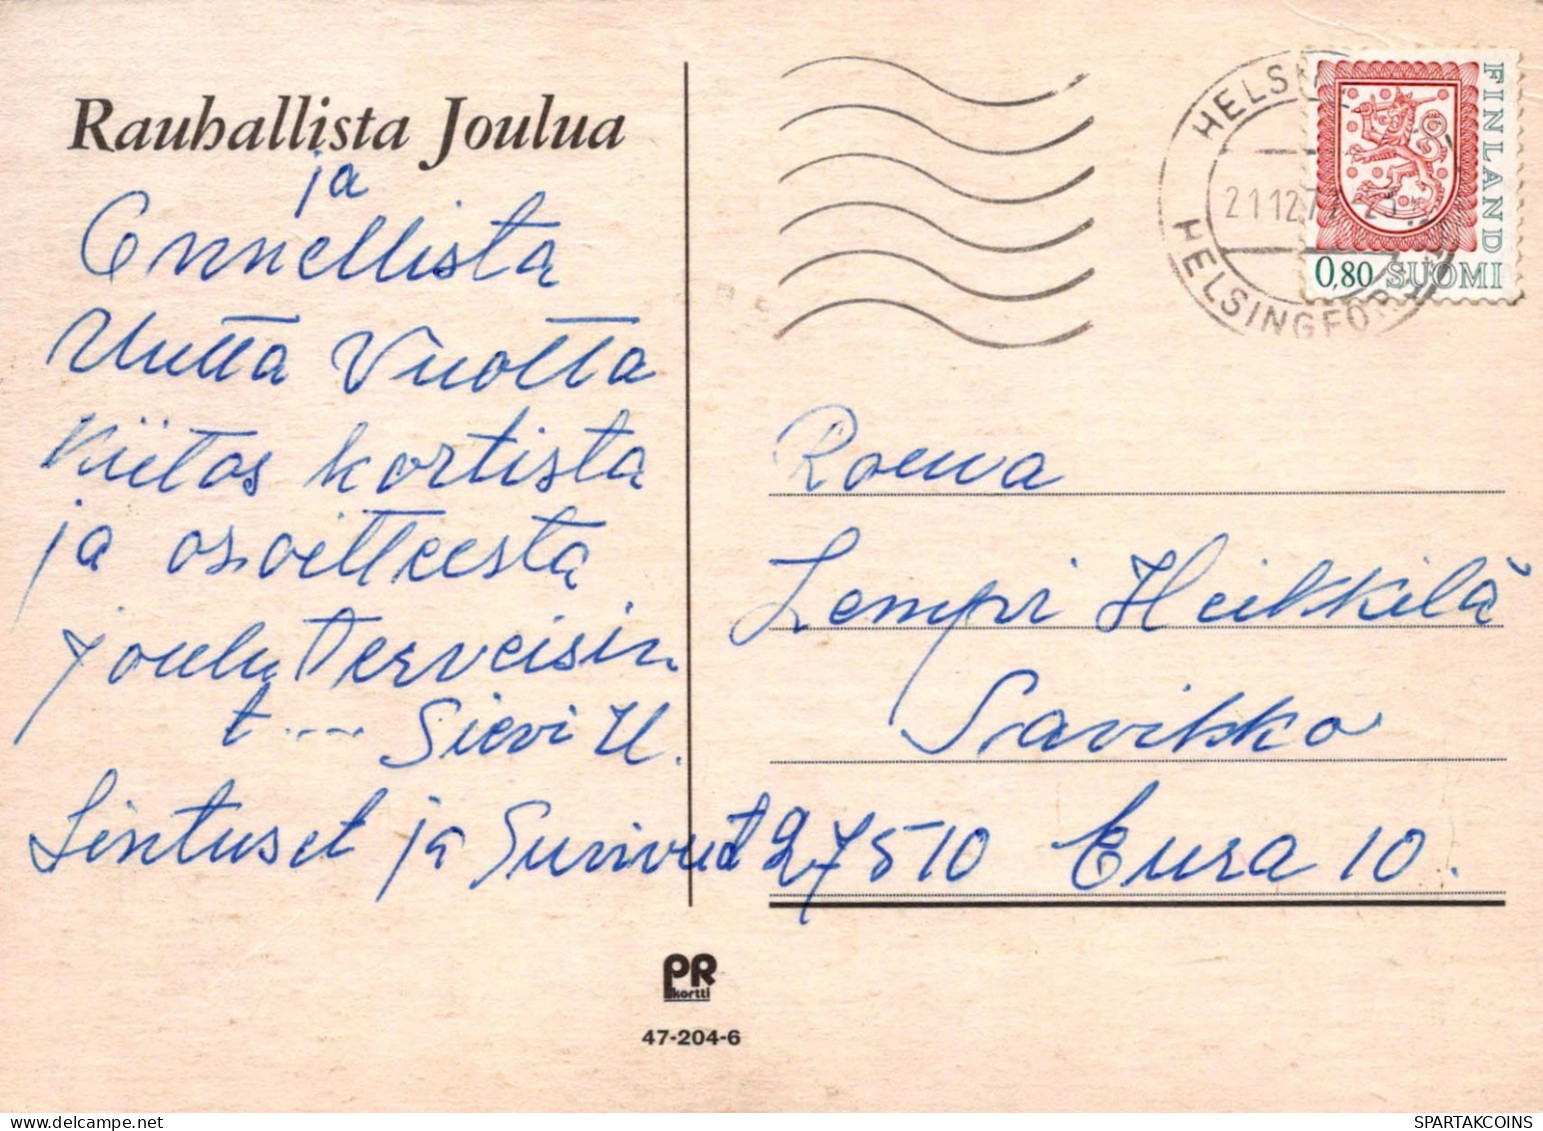 Rauhallista Joulua
ja
Onnellista
Uutta Vuotta
Kiitos kortista
ja osoitteesta
jouluterveisin
t .... Sievi H.
Sintuset ja
HELSINGFORS
21.12.7
FINLAND
0,80 SUOMI
Rouva
Lempi Heikkilä
Savikko
27510 Eura 10.
PR
kortti
47-204-6
SPARTAKCOINS.COM